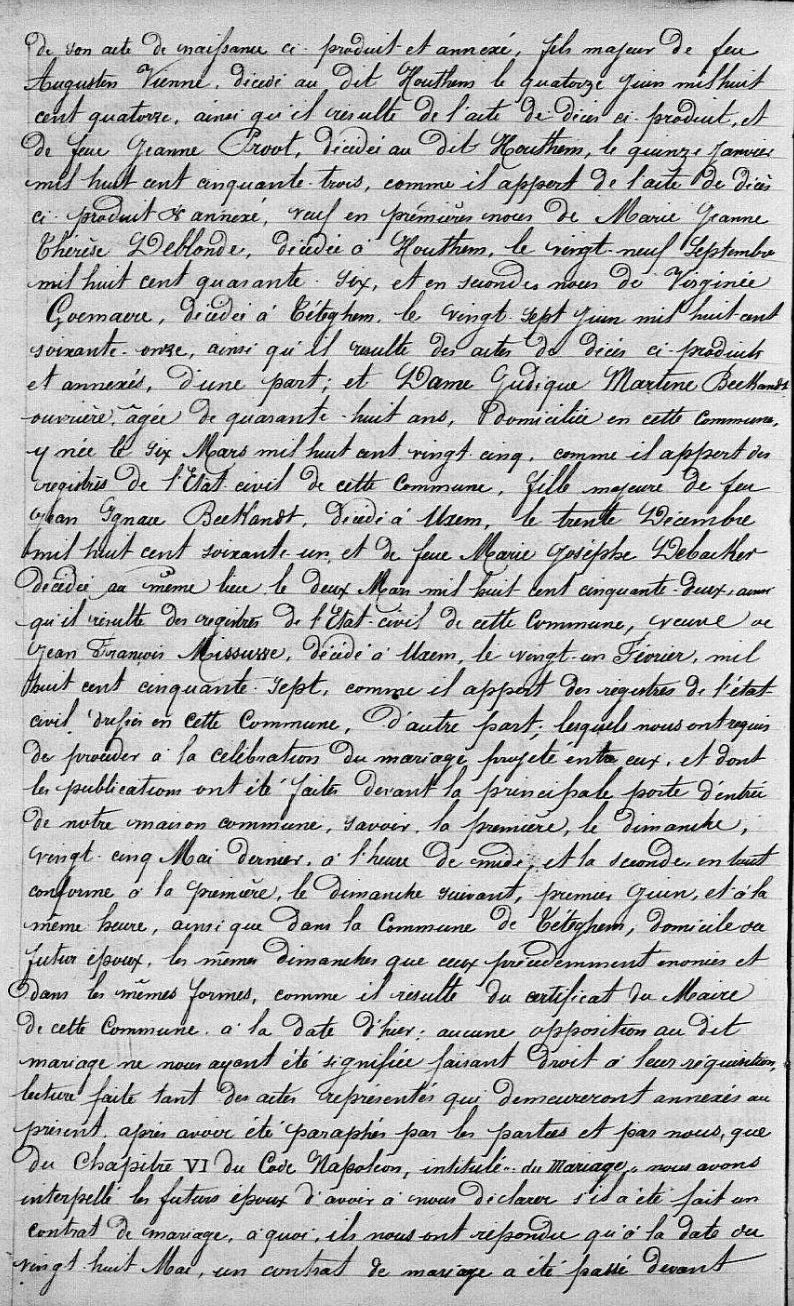 de son acte de naissance ci-produit et annexé, fils majeur de feu
Augustin Vienne, décédé au dit Houthem le quatorze juin mil huit
cent quatorze, ainsi qu'il resulte de l'acte de décès ci-produit, et
de feue Jeanne Proot, décédée au dit Houthem, le quinze Janvier
mil huit cent cinquante-trois, comme il appert de l'acte de décès
ci-produit & annexé, veuf en premières noces de Marie Jeanne
Thérèse Deblonde, décédée à Houthem, le vingt-neuf Septembre
mil huit cent quarante-six, et en secondes noces de Virginie
Goemaere, décédée à Téteghem, le vingt-sept Juin mil huit-cent
soixante-onze, ainsi qu'il resulte des actes de décès ci-produits
et annexés, d'une part; et Dame Judique Martine Beekandt
ouvrière, âgée de quarante-huit ans, domiciliée en cette Commune,
y née le six Mars mil huit cent vingt-cinq, comme il appert des
registres de l'Etat-civil de cette Commune, fille majeure de feu
Jean Ignace Beekandt, décédé à Uxem, le trente Décembre
mil huit cent soixante-un, et de feue Marie Josèphe Debacker
décédée au même lieu le deux Mars mil huit cent cinquante-deux, ainsi
qu'il résulte des registres de l'Etat-civil de cette Commune, veuve de
Jean François Missusse, décédé à Uxem, le vingt-un Février, mil
huit cent cinquante-sept, comme il appert des registres de l'état
civil, dressés en cette Commune, d'autre part; lesquels nous ont requis
de procéder à la celébration du mariage projeté entre eux, et dont
les publications ont été faites devant la principale porte d'entrée
de notre maison commune, savoir, la première, le dimanche,
vingt-cinq Mai dernier, à l'heure de midi, et la seconde, en tout
conforme à la première, le dimanche suivant, premier Juin, et à la
même heure, ainsi que dans la Commune de Téteghem, domicile du
futur époux, les mêmes dimanches que ceux précédemment enoncés et
dans les mêmes formes, comme il résulte du certificat du Maire
de cette Commune à la date d'hier; aucune opposition au dit
mariage ne nous ayant été signifiée faisant droit à leur réquisition,
lecture faite tant des actes représentés qui demeureront annexés au
présent, après avoir été paraphés par les parties et par nous, que
du Chapitre VI du Code Napoléon, intitulé "du Mariage" nous avons
interpellé les futurs époux d'avoir à nous déclarer s'il a été fait un
contrat de mariage, à quoi, ils nous ont répondu qu'à la date du
vingt-huit Mai, un contrat de mariage a été passé devant